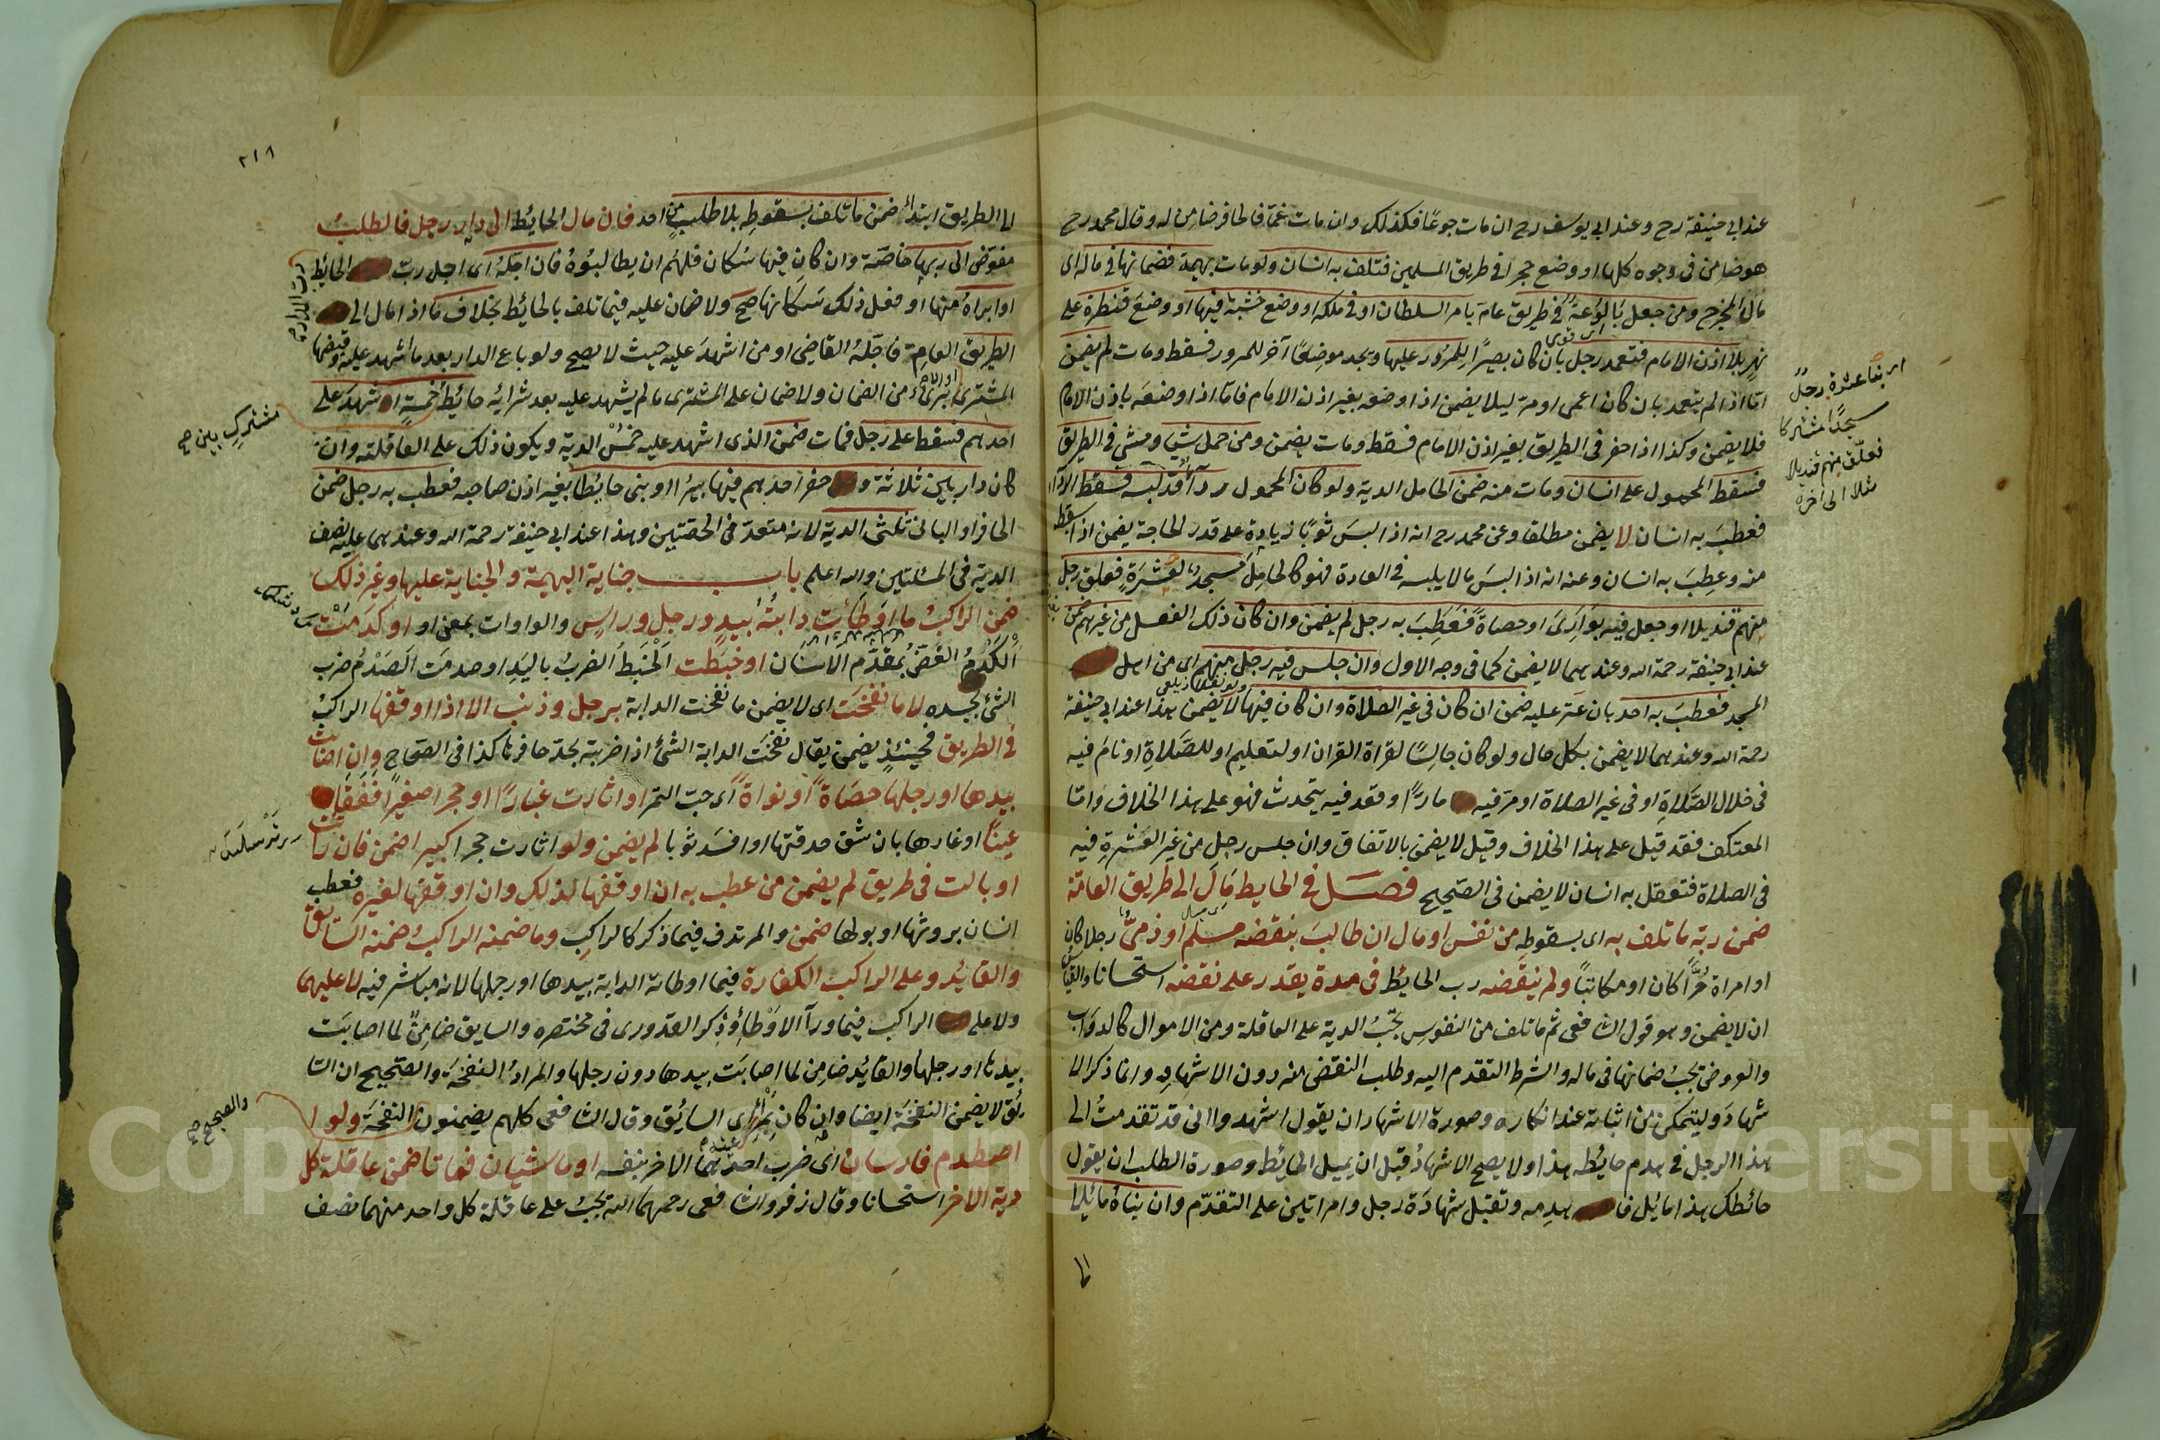 عند ابي حنيفة رح وعند ابي يوسف رح ان مات جوعًا فكذلك وان مات غمّا فالحافر ضامن له وقال محمد رح
هو ضامن في وجوه كلها او وضع حجرا في طريق المسلمين فتلف به انسان ولو مات بهيمة فضمانها في ماله اى
مال المخرج ومن جعل بَالُوعَةً في طريق عامة بامر السلطان او في ملكه او وضع خشبة فيها او وضعَ قنطرة على
نهر بلا اذن الامام فتعمد رجل بان كان بصيرًا للمرُور عليها ويجد موضِعًا آخر للمرور فسقط ومات لم يضمن
امّا اذا لم يتعمد بان كان اعمى او مرّ ليلا يضمن اذا وضعه بغير اذن الامام فامّا اذا وضعَه باذن الامام
فلا يضمن وكذا اذا حفر في الطريق بغير اذن الامام فسقط ومات يضمن ومن حمل شيا ومشى في الطريق
فسقط المحمول على انسان ومات منه ضمن الحامل الدية ولو كان المحمول ردآءً قد لبسه فسقط الردآء
فعطبَ به انسان لا يضمن مطلقا وعن محمد رح انه اذا لبسَ ثوبًا زيادة على قدر الحاجة يضمن اذا سقط
منه وعِطِبَ به انسان وعنه انه اذا لبسَ ما لا يلبسه في العادة فهو كالحامِل مَسجدٌ لِعَشرَةٍ فعلق رجل
منهم قنديلا او جعل فيه بَوَارِىَ او حصاةً فَعَطِبَ به رجل لم يضمن وان كان ذلك الفعل من غيرهم ضمن
عند ابي حنيفة رحمة الله وعندهما لا يضمن كما في وجه الاول وان جلس فيه رجل منهم اى من اهل
المسجد فعَطبَ به احد بان عَثر عليه ضمن ان كان في غير الصلاة وان كان فيها لا يضمن هذا عند ابي حنيفة
رحمة الله وعندهما لا يضمن بكل حال ولو كان جالِسًا لقراة القران او لتعليم او للصَّلاةِ او نامَ فيه
في خلال الصَّلاةِ او في غير الصلاة او مرّ فيه مارًّا وقعد فيه يتحدث فهو على هذا الخلاف وامّا
المعتكف فقد قيل على هذا الخلاف وقيل لا يضمن بالاتفاق وان جلس رجل من غير العَشرةِ فيه
في الصلاة فتعقل به انسان لا يضمن في الصحيح فصل في الحايط مَالَ الى طريق العَامّة
ضمن ربّه ما تلف به اى بسقوطِه من نفس او مال ان طالبَ بنقضه مسلم او ذمىٌّ رجلا كان
او امراة حُرًّا كان او مكاتبًا ولم ينقضه رب الحائط في مدة يقدر على نقضه استحسانا والقياس
ان لا يضمن وهو قول الشافعى ثم ما تلف من النفوس تجبُ الدية على العاقلة ومن الاموال كالدوَاب
والعروض تجبُ ضمانها في ماله والشرط التقدم اليه وطلب النقض منه دون الاشهادِ وانما ذكر الا
شهادَ وليتمكن من اثباته عند انكاره وصورة الاشهاد ان يقول اشهدوا انى قد تقدمتُ الى
هذا الرجل في هدم حائطه هذا ولا يصح الاشهادُ قبل ان يميل الحائط وصورة الطلب ان يقول
حائطك هذا مائل فا هدِمه وتقبل شهادَة رجل وامراتين على التقدّم وان بناهُ مائلا
اربعة عشرة رجلٌ
مسجدًا مشتركا
فعلّق منهم قنديلا
مثلا الى آخره
٢١٨
الى الطريق ابتداءً ضمن ما تلف بسقوطِه بلا طلبٍ من احد فان مال الحائط الى دار رجل فالطلبُ
مفوّض الى ربها خاصّة وان كان فيها سُكان فلهُم ان يطالبُوهُ فان اجلهُ اى اجل ربّ الحائط
او ابراهُ منها او فعل ذلك سَكانها صح ولا ضمان عليه فيما تلف بالحائط بخلاف ما اذا مال الى
الطريق العام فاجّلهُ القاضى او من اشهدَ عليه حيث لا يصح ولو باع الدار بعد ما اشهد عليه وقبضها
المشترى بَرِىءَ من الضمان ولا ضمان على المشترى ما لم يشهد عليه بعد شرائه حائط لخمسةٍ اشهدَ على
احدهم فسقط على رجل فمات ضمن الذى اشهد عليه خمسُ الدية ويكون ذلك على العاقلة وان
كان دار بين ثلاثة و حفر احدهم فيها بيرًا او بنى حائطا بغير اذن صاحبه فعطب به رجل ضمن
الحافر او البانى ثلثى الدية لانه متعدّ في الحصّتين وهذا عند ابي حنيفة رحمة الله وعندهما عليه نصف
الدية في المسئلتين والله اعلم باب جناية البهيمة والجناية عليها وغير ذلك
ضمن الراكبُ ما اوَطأت دابتُه بيدٍ ورجلٍ ورأسٍ والواوات بمعنى او او كدَمَتْ
اَلْكَدمُ العَضّ بمقدّم الاسنان او خبَطت اَلْخبَط الضربُ باليدِ او صدمَت اَلصَدْمُ ضرب
الشئ بجسده لا ما نفحَت اى لا يضمن ما نفحت الدابة برجل وذنب الا اذا اوقفها الراكبُ
في الطريق فحينئذٍ يضمن يقال نفحَت الدابة الشئ اذا ضربته بحدّ حافرها كذا في الصّحاح وان اصابت
بيدها اور جلها حصَاةً او نواةً اى حب التمر او اثارت غبارًا او حجرا صغيرا ففقأ
عينًا او غارها بان شق حدقتها او افسَد ثوبا لم يضمن ولو اثارت حجرا كبيرا ضمن فان راثت
او بالت في طريق لم يضمن من عطب به ان اوقفها لذلك وان اوقفها لغيره فعطب
انسان بروثها او بولها ضمن والمرتدف فيما ذكر كالراكبِ وما ضمنه الراكبُ ضمنه السائق
والقائدُ وعلى الراكب الكفارة فيما اوطاته الدابة بيدها اور جلها لانه مباشر فيه لا عليهما
ولا على الراكب فيما ورآء الاوطأِ وذكر القدورى في مختصره والسايق ضامِنٌ لما اصابَت
بيدها اور جلها والقائدُ ضامِن لما اصابَت بيدها دون رجلها والمرادُ النفحَة والصحيح ان السّا
ئق لا يضمن النفحَة ايضا وان كان بمرأى السائق وقال الشافعى كلهم يضمنون النفحَة ولو ا
اصطدم فارسان اى ضرب احدهما الآخر بنفسه او ماشيان فماتا ضمن عاقلة كل
دية الاخر استحسانا وقال زفر والشافعى رحمهما الله تجبُ على عاقلة كل واحد منهما نصف
رب الدار صح
مشترك بين صح
والصحيح صح
Copyright © King Saud University